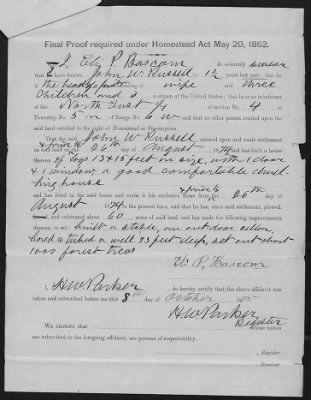 Final Proof required under Homestead Act May 20, 1862.
I, Eli P. Bascom do solemnly swear
that have known John W. Russell 1½ years last past, that he
is the head of a family of wife and three
Children and is a citizen of the United States; that he is an inhabitant
of the North East ¼ of section of No. 4
Township 5 n of Range 6 W and that no other person resided on the said
land entitled to the right of Homestead or Pre-emption.
That the said John W. Russell entered upon and made settlement
& prior to 26th August 1874 has built a house
thereon of Logs 13 x 15 feet in size, with 1 door
& 1 window a good comfortable dwell-
ing house
and has lived in the said house and made it his exclusive home from & prior to 26th of
August 1874 to the present time, and that he has, since said settlement, plowed,
and cultivated about 60 acres of said land, and has made the following improvements
thereon, to wit: built a stable, an out door cellar,
bored & tubed a well 43 feet deep, set out about
1000 forest trees
Eli P. Bascom
I, H W Parker do hereby certify that the above affidavit was
taken and subscribed before me this 8th day of October 1875
H W Parker
Register
We certify that
are subscribed to the foregoing affidavit, are persons of respectability.
Register.
Receiver.